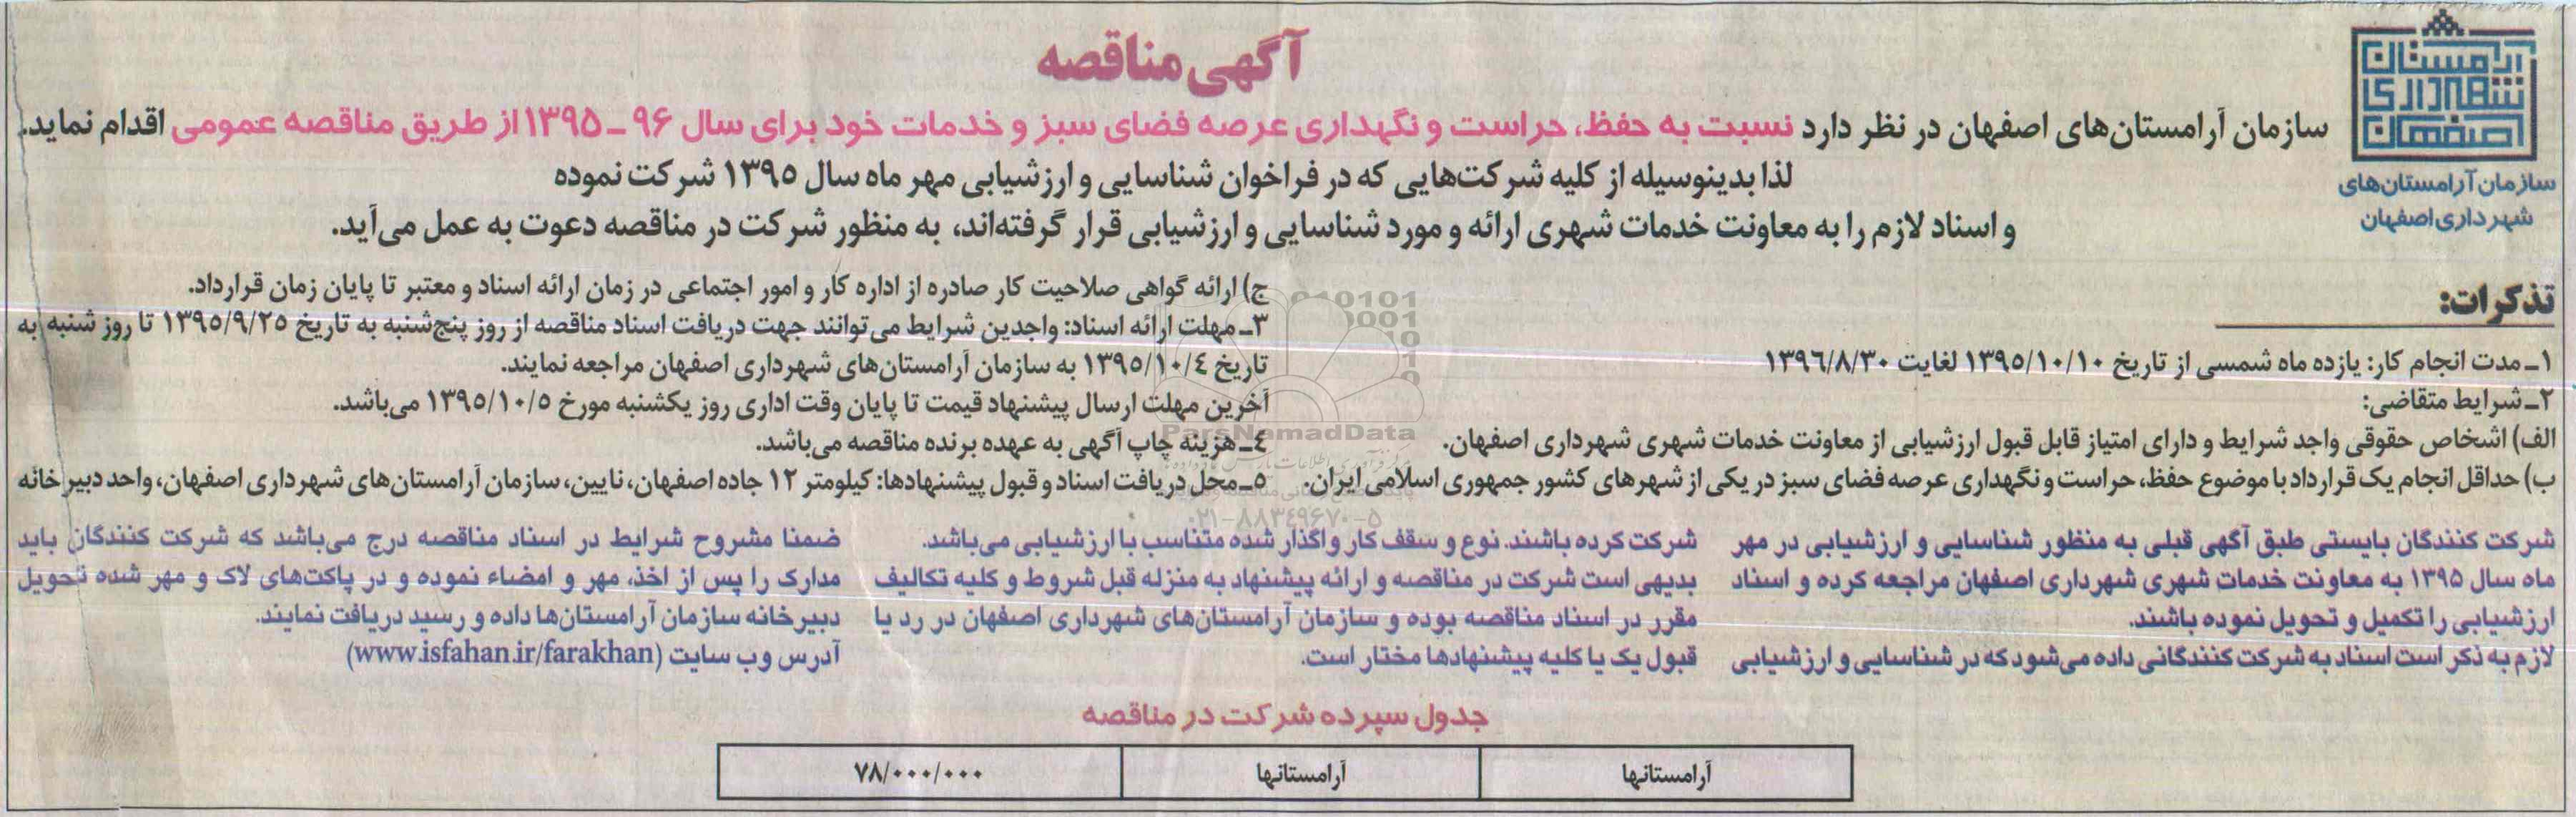 آگهی مناقصه
آرامستان
شهرداری
اصفهان
سازمان آرامستان‌های
شهرداری اصفهان
سازمان آرامستان‌های اصفهان در نظر دارد نسبت به حفظ، حراست و نگهداری عرصه فضای سبز و خدمات خود برای سال ۹۶ ـ ۱۳۹۵ از طریق مناقصه عمومی اقدام نماید.
لذا بدینوسیله از کلیه شرکت‌هایی که در فراخوان شناسایی و ارزشیابی مهر ماه سال ۱۳۹۵ شرکت نموده
و اسناد لازم را به معاونت خدمات شهری ارائه و مورد شناسایی و ارزشیابی قرار گرفته‌اند، به منظور شرکت در مناقصه دعوت به عمل می‌آید.
تذکرات:
۱ـ مدت انجام کار: یازده ماه شمسی از تاریخ ۱۳۹۵/۱۰/۱۰ لغایت ۱۳۹۶/۸/۳۰
۲ـ شرایط متقاضی:
الف) اشخاص حقوقی واجد شرایط و دارای امتیاز قابل قبول ارزشیابی از معاونت خدمات شهری شهرداری اصفهان.
ب) حداقل انجام یک قرارداد با موضوع حفظ، حراست و نگهداری عرصه فضای سبز در یکی از شهرهای کشور جمهوری اسلامی ایران.
ج) ارائه گواهی صلاحیت کار صادره از اداره کار و امور اجتماعی در زمان ارائه اسناد و معتبر تا پایان زمان قرارداد.
۳ـ مهلت ارائه اسناد: واجدین شرایط می‌توانند جهت دریافت اسناد مناقصه از روز پنج‌شنبه به تاریخ ۱۳۹۵/۹/۲۵ تا روز شنبه به
تاریخ ۱۳۹۵/۱۰/۴ به سازمان آرامستان‌های شهرداری اصفهان مراجعه نمایند.
آخرین مهلت ارسال پیشنهاد قیمت تا پایان وقت اداری روز یکشنبه مورخ ۱۳۹۵/۱۰/۵ می‌باشد.
۴ـ هزینه چاپ آگهی به عهده برنده مناقصه می‌باشد.
۵ـ محل دریافت اسناد و قبول پیشنهادها: کیلومتر ۱۲ جاده اصفهان، نایین، سازمان آرامستان‌های شهرداری اصفهان، واحد دبیرخانه
ParsNamadData
۰۲۱-۸۸۳۴۹۶۷۰-۵
شرکت کنندگان بایستی طبق آگهی قبلی به منظور شناسایی و ارزشیابی در مهر
ماه سال ۱۳۹۵ به معاونت خدمات شهری شهرداری اصفهان مراجعه کرده و اسناد
ارزشیابی را تکمیل و تحویل نموده باشند.
لازم به ذکر است اسناد به شرکت کنندگانی داده می‌شود که در شناسایی و ارزشیابی
شرکت کرده باشند. نوع و سقف کار واگذار شده متناسب با ارزشیابی می‌باشد.
بدیهی است شرکت در مناقصه و ارائه پیشنهاد به منزله قبل شروط و کلیه تکالیف
مقرر در اسناد مناقصه بوده و سازمان آرامستان‌های شهرداری اصفهان در رد یا
قبول یک یا کلیه پیشنهادها مختار است.
ضمنا مشروح شرایط در اسناد مناقصه درج می‌باشد که شرکت کنندگان باید
مدارک را پس از اخذ، مهر و امضاء نموده و در پاکت‌های لاک و مهر شده تحویل
دبیرخانه سازمان آرامستان‌ها داده و رسید دریافت نمایند.
آدرس وب سایت (www.isfahan.ir/farakhan)
جدول سپرده شرکت در مناقصه
آرامستانها آرامستانها ۷۸/۰۰۰/۰۰۰